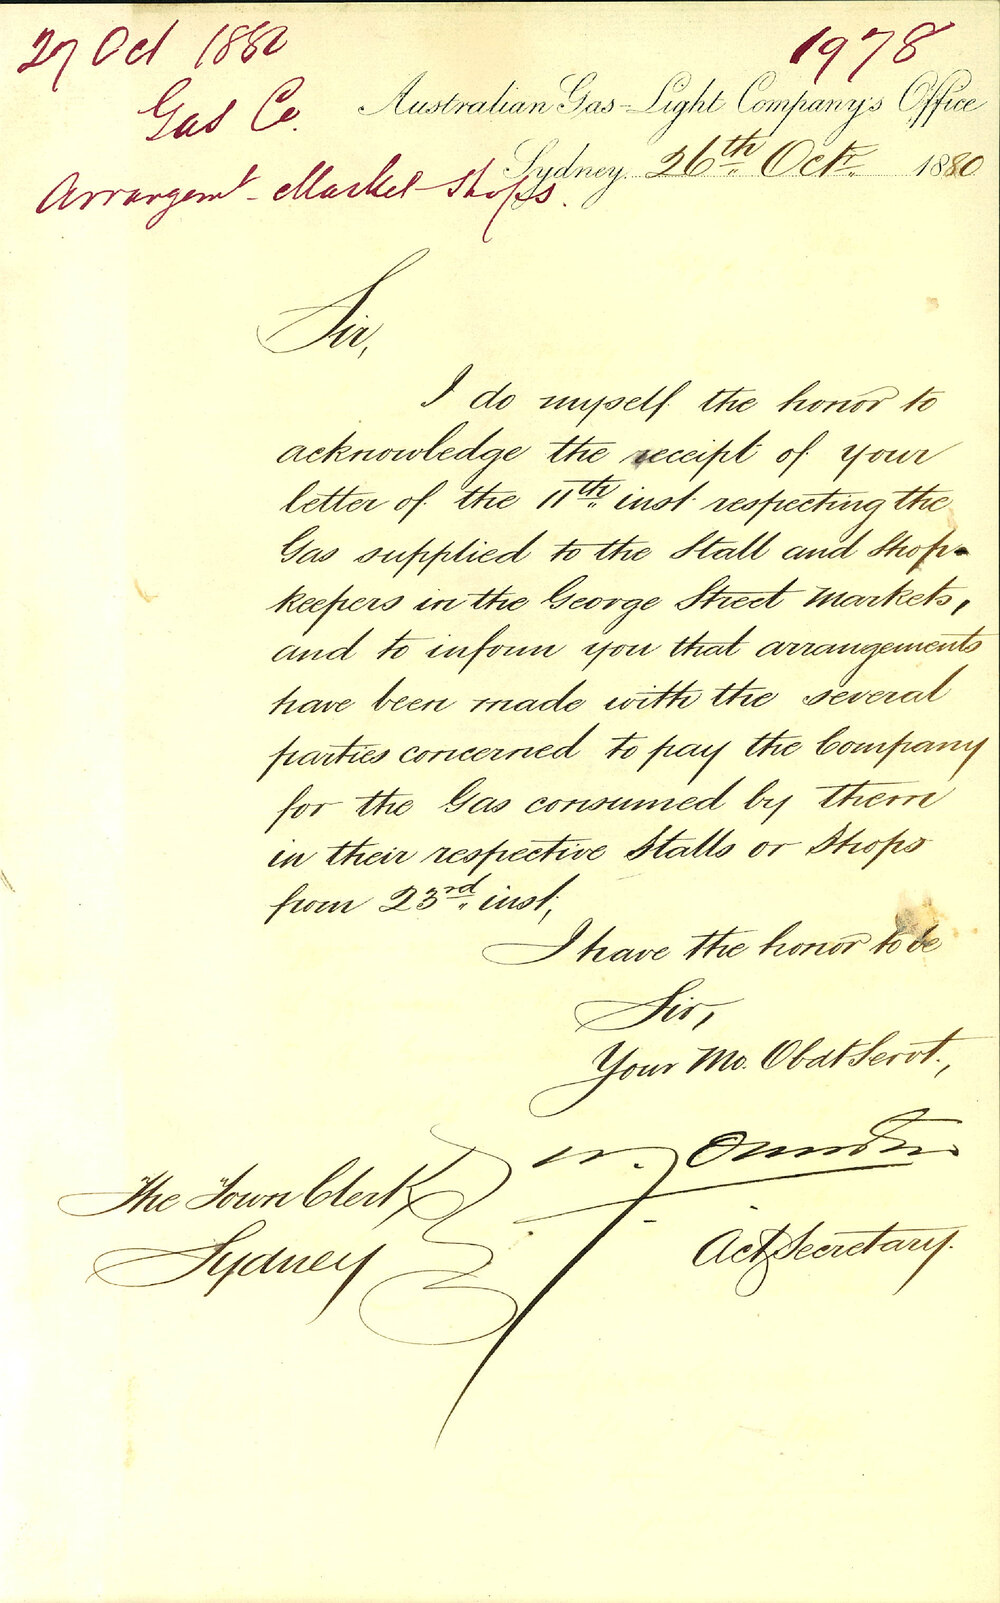 27 Oct 1880
1978
Gas Co.
Australian Gas-Light Company's Office
Arrangemt Market Shops.
Sydney. 26th Octr. 1880
Sir,
I do myself the honor to
acknowledge the receipt of your
letter of the 11th inst respecting the
Gas supplied to the Stall and Shop-
keepers in the George Street Markets,
and to inform you that arrangements
have been made with the several
parties concerned to pay the Company
for the Gas consumed by them
in their respective Stalls or Shops
from 23rd inst,
I have the honor to be
Sir,
Your Mo. Obdt Servt.,
W.
The Town Clerk
Sydney
Actg Secretary.